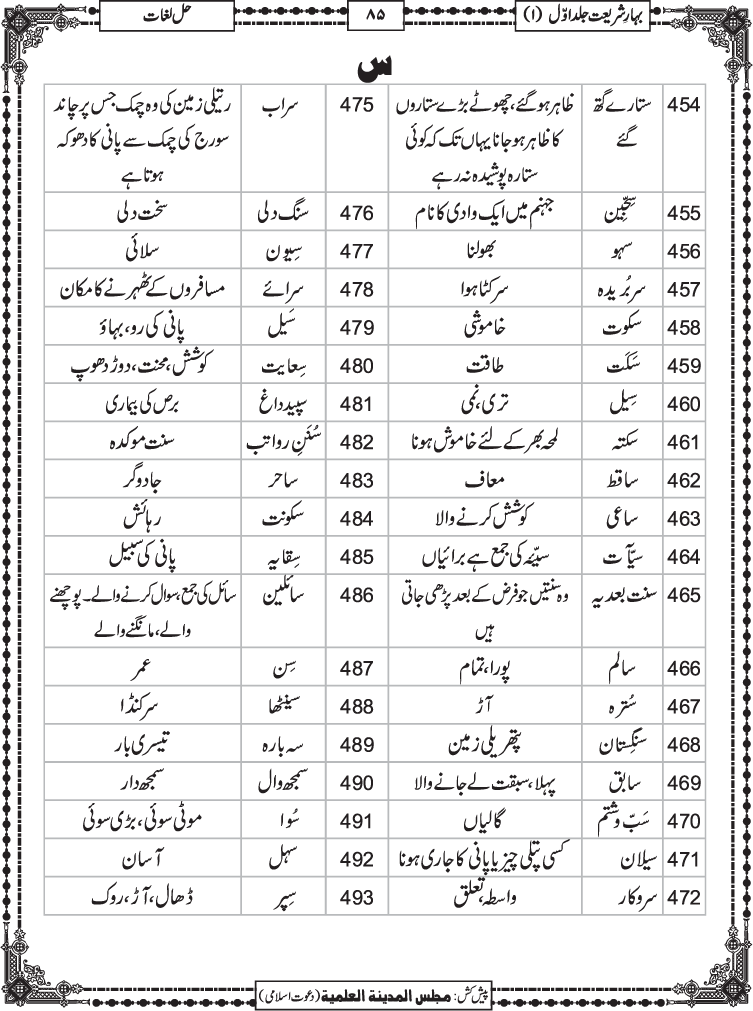 بہارِ شریعت جلد اوّل (۱)
۸۵
حل لغات
س
454 ستارے گتھ گئے ظاہر ہو گئے، چھوٹے بڑے ستاروں کا ظاہر ہو جانا یہاں تک کہ کوئی ستارہ پوشیدہ نہ رہے 475 سراب ریتلی زمین کی وہ چمک جس پر چاند سورج کی چمک سے پانی کا دھوکہ ہوتا ہے
455 سِجِّین جہنم میں ایک وادی کا نام 476 سنگ دلی سخت دلی
456 سہو بھولنا 477 سِیون سلائی
457 سر بُریدہ سر کٹا ہوا 478 سرائے مسافروں کے ٹھہرنے کا مکان
458 سکوت خاموشی 479 سَیل پانی کی رو، بہاؤ
459 سَکَت طاقت 480 سِعایت کوشش، محنت، دوڑ دھوپ
460 سِیل تری، نمی 481 سپید داغ برص کی بیماری
461 سکتہ لمحہ بھر کے لئے خاموش ہونا 482 سُنَنِ رواتب سنت موکدہ
462 ساقط معاف 483 ساحر جادوگر
463 ساعی کوشش کرنے والا 484 سکونت رہائش
464 سیّآت سیّئہ کی جمع ہے برائیاں 485 سِقایہ پانی کی سبیل
465 سنت بعدیہ وہ سنتیں جو فرض کے بعد پڑھی جاتی ہیں 486 سائلین سائل کی جمع، سوال کرنے والے۔ پوچھنے والے، مانگنے والے
466 سالم پورا، تمام 487 سِن عمر
467 سُترہ آڑ 488 سینٹھا سرکنڈا
468 سنگِستان پتھریلی زمین 489 سہ بارہ تیسری بار
469 سابق پہلا، سبقت لے جانے والا 490 سمجھ وال سمجھ دار
470 سَبّ و شتم گالیاں 491 سُوا موٹی سوئی، بڑی سوئی
471 سیلان کسی پتلی چیز یا پانی کا جاری ہونا 492 سہل آسان
472 سروکار واسطہ، تعلق 493 سِپر ڈھال، آڑ، روک
پیش کش: مجلس المدینۃ العلمیۃ (دعوت اسلامی)